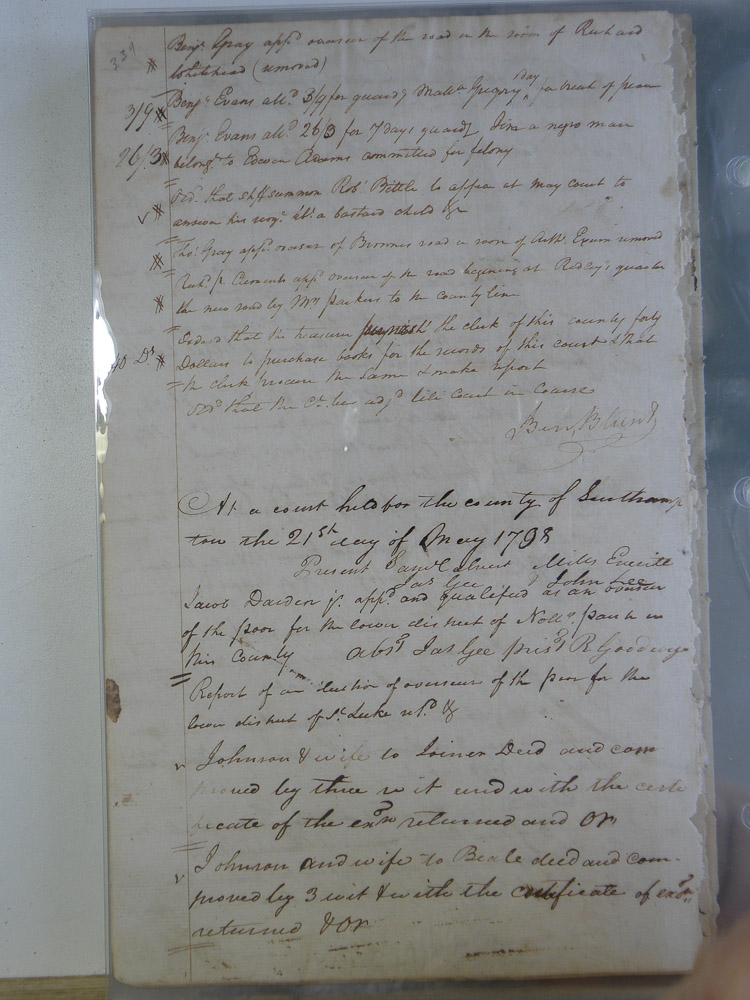 339
Benj. Gray app.d overseer of the road in the room of Richard
Whitehead (removed)
3/9 Benj.n Evans all.d 3/9 for guard.g Matt.w Gregory 1 day for breach of peace
26/3 Benj. Evans all.d 26/3 for 7 days guard.g a negro man
belong.g to Edwin Adams committed for felony
Ord. that shff summon Rob.t Bittle to appear at may court to
answer his recog.e a bastard child &c
Tho.s Gray app.d overseer of Brownes road in room of removed
Clements app.d overseer of the road begining at Ridley's quarter
the new road by Mrs Parkers to the county line
Orderd that the treasurer the clerk of this county forty
40 Ds Dollars to purchase books for the records of this court & that
the clerk procure the same & make report
Ord.d that the C.t be adj.d till Court in Course
Ben Blunt
At a court held for the county of Southamp
ton the 21st day of May 1798
Present Sam.l Calvert Miles Everitt
Jas Gee John Lee
Jacob Darden jr. app.d and qualified as an overseer
of the poor for the lower district of Nott.y parish in
this County abs.t Jas Gee pris.t R Goodwyn
Report of an election of overseers of the poor for the
lower district of St. Luke ret.d &
Johnson & wife to Joiner Deed and com
proved by three wit and with the certi
ficate of the ex.n returned and Or
Johnson and wife to Beale deed and com-
proved by 3 wit & with the certificate of ex.n
returned & Or